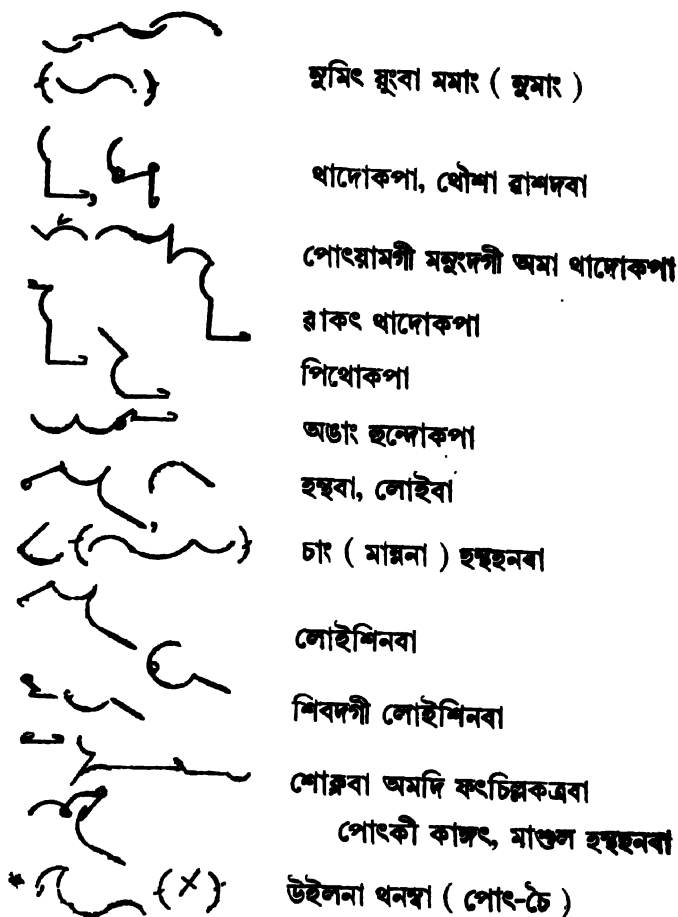 নুমিৎ য়ুংবা মমাং ( নুমাং )
থাদোকপা, থৌশা ৱাশদবা
পোৎয়ামগী মনুংদগী অমা থাদোকপা
ৱাকৎ থাদোকপা
পিথোকপা
অঙাং হুন্দোকপা
হন্থবা, লোইবা
চাং ( মান্ননা ) হন্থহনবা
লোইশিনবা
শিবদগী লোইশিনবা
শোক্লবা অমদি ফৎচিল্লকত্রবা
পোৎকী কাঙ্গৎ, মাশুল হন্থহনবা
উইলনা থনম্বা ( পোৎ-চৈ )